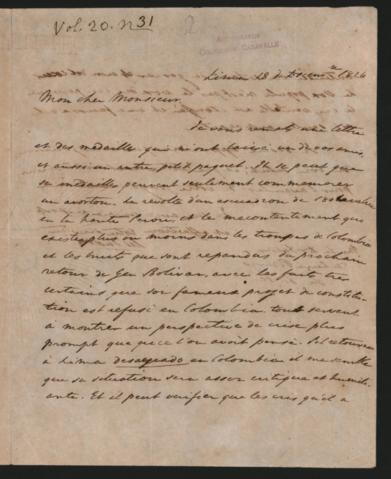 Vol. 20. n 31
Lima 18 de 1826
Mon cher Monsieur
Je vous une lettre
et des medailles qui m'ont laissé un de vos amis,
et aussi un autre petit paquet. Il se peut que
se medailles peuvent seulement commemorer
un avorton. La revolte d'un escuadron de
en le haute Perou, et le mecontentement que
existe plus ou moins dans les troupes de Colombia
et les bruits que sont repandus du prochain
retour de Gen Bolivar, avec les faits tres
certains que son fameux projet de constitu-
tion est refusé en Colombia tout servent
a montrer un perspective de crise plus
prompt que l'on avoit pensé. Sil retourne
à Lima desayrado en Colombia il me semble
que sa situation sera assez critique et humili-
ante. Et il peut verifier que les cris qu'il a